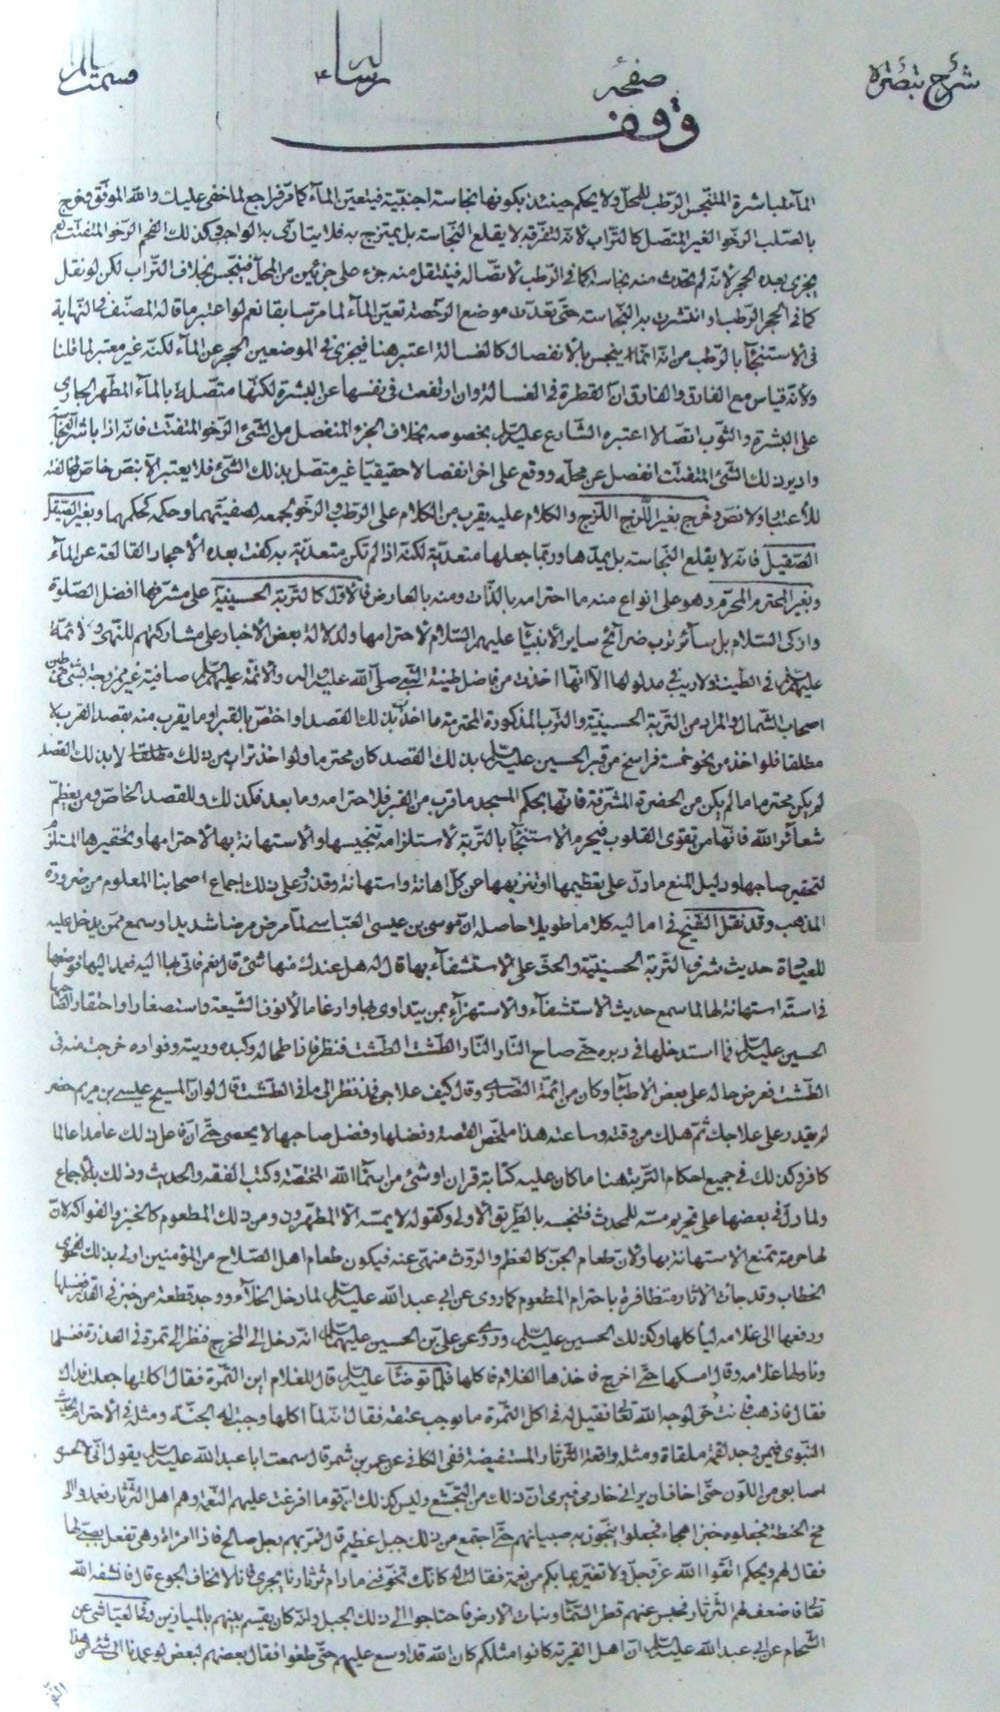 شرح تبصرة
صفحه
وقف
الماء لمباشرة المتنجس الرطب للمحل ولا يحكم حينئذ بكونها نجاسة اجنبية فيتعين الماء كما مر فراجع لما خفى عليك والله الموفق وخرج
بالصلب الرخو الغير المتصل كالتراب لانه لتفرقه لا يقلع النجاسة بل يمتزج به فلا يتادى به الواجب وكذلك الفحم الرخو المتفتت نعم
يجزى بعده الحجر لانه لم يحدث منه نجاسة كما فى الرطب لاتصاله فينتقل منه جزء على جزئين من المحل فينجس بخلاف التراب لكن لو نقل
كما فى الحجر الرطب او انتشرت به النجاسة حتى تعدت موضع الرخصة تعين الماء لما مر سابقا نعم لو اعتبر ما قاله المصنف فى النهاية
فى الاستنجاء بالرطب من انه انما ينجس بالانفصال كالغسالة اعتبر هنا فيجزى فى الموضعين الحجر عن الماء لكنه غير معتبر لما قلنا
ولانه قياس مع الفارق والفارق ان القطرة فى الغسالة وان ارتفعت فى نفسها عن البشرة لكنها متصلة بالماء المطهر الجارى
على البشرة والثوب اتصالا اعتبره الشارع عليه السلم بخصوصه بخلاف الجزء المنفصل من الشئ الرخو المتفتت فانه اذا باشر النجاسة
وادير ذلك الشئ المتفتت انفصل عن محله ووقع على اخر انفصالا حقيقيا غير متصل بذلك الشئ فلا يعتبر الا بنص خاص لمخالفته
للاعتبار ولا نص وخرج بغير اللزج اللزج والكلام عليه يقرب من الكلام على الرطب والرخو لجمعه لصفيتهما وحكمه كحكمهما وبغير الصيقل
الصقيل فانه لا يقلع النجاسة بل يمدها وربما جعلها متعدية لكنه اذا لم تكن متعدية به كفت بعده الاحجار القالعة عن الماء
وبغير المحترم المحترم وهو على انواع منه ما احترامه بالذات ومنه بالعارض فالاول كالتربة الحسينية على مشرفها افضل الصلوة
وازكى السلام بل سائر ترب ضرائح ساير الانبياء عليهم السلام لاحترامها ولدلالة بعض الاخبار على مشاركتهم للنبى والائمة
عليهم السلم فى الطينة ولا ريب فى مدلولها الا انها اخذت من فاضل طينة النبى صلى الله عليه واله والائمة عليهم السلم صافية غير ممزوجة بشئ من طين
اصحاب الشمال والمراد من التربة الحسينية والترب المذكورة المحترمة ما اخذ بذلك القصد او اختص بالقبر او ما يقرب منه بقصد القرب لا
مطلقا فلو اخذ من نحو خمسة فراسخ من قبر الحسين عليه السلم بذلك القصد كان محترما ولو اخذ تراب من ذلك مطلقا لا بذلك القصد
لم يكن محترما ما لم يكن من الحضرة المشرفة فانها بحكم المسجد ما قرب من القبر فلاحترامه وما بعد فكذلك وللقصد الخاص ومن يعظم
شعائر الله فانها من تقوى القلوب فيحرم الاستنجاء بالتربة لاستلزامه تنجيسها والاستهانة بها لاحترامها وتحقيرها المستلزم
لتحقير صاحبها ودليل المنع ما دل على تعظيمها وتنزيهها عن كل اهانة واستهانة وقد دل على ذلك اجماع اصحابنا المعلوم من ضرورة
المذهب وقد نقل الشيخ فى اماليه كلاما طويلا حاصله ان موسى بن عيسى العباسى لما مرض مرضا شديدا وسمع ممن يدخل عليه
للعيادة حديث شرف التربة الحسينية والحث على الاستشفاء بها قال له هل عندك منها شئ قال نعم فاتى بها اليه فعمد اليها فوضعها
فى استه استهانة لها لما سمع حديث الاستشفاء والاستهزاء بمن يتداوى بها وارغاما لانوف الشيعة واستصغارا واحتقارا لصاحبها
الحسين عليه السلم فما استدخلها فى دبره حتى صاح النار النار الطشت الطشت فنظر فاذا طحاله وكبده وريته وفؤاده خرجت منه فى
الطشت فعرض حاله على بعض الاطباء وكان من ائمة النصارى وقال كيف علاجى فلما نظر الى ما فى الطشت قال لو ان المسيح عيسى بن مريم حضر
لم يقدر على علاجك ثم هلك من وقته وساعته هذا ملخص القصة وفضلها وفضل صاحبها لا يحصى حتى ان فاعل ذلك عامدا عالما
كافر وكذلك فى جميع احكام التربة هنا ما كان عليه كتابة قران او شئ من اسماء الله المختصة وكتب الفقه والحديث وذلك بالاجماع
ولما دل فى بعضها على تحريم مسه للمحدث فتنجسه بالطريق الاولى وكقوله لا يمسه الا المطهرون ومن ذلك المطعوم كالخبز والفواكه لان
لها حرمة تمنع الاستهانة بها ولان طعام الجن كالعظم والروث منهى عنه فيكون طعام اهل الصلاح من المؤمنين اولى بذلك لفحوى
الخطاب وقد جاءت الاثار متظافرة باحترام المطعوم كما روى عن ابى عبد الله عليه السلم لما دخل الخلاء ووجد قطعة من خبز فى القذر فغسلها
ودفعها الى غلامه لياكلها وكذلك الحسين عليه السلم وروى عن على بن الحسين عليهما السلم انه دخل الى المخرج فنظر الى تمرة فى العذرة فغسلها
وناولها غلامه وقال امسكها حتى اخرج فاخذها الغلام فاكلها فلما توضا عليه السلم قال للغلام اين التمرة فقال اكلتها جعلت فداك
فقال فاذهب فانت حر لوجه الله تعالى فقيل له فى اكل التمرة ما يوجب عتقه فقال انه لما اكلها وجبت له الجنة ومثله فى الاحترام الحديث
النبوى فيمن وجد لقمة ملقاة ومثله واقعة الثرثار المستفيضة ففى الكافى عن عمر بن شمر قال سمعت ابا عبد الله عليه السلم يقول انى لالحس
اصابعى من الادم حتى اخاف ان يرانى خادمى فيرى ان ذلك من التجشع وليس كذلك ان قوما افرغت عليهم النعمة وهم اهل الثرثار فعمدوا الى
مخ الحنطة فجعلوه خبزا هجاء فجعلوا ينجون به صبيانهم حتى اجتمع من ذلك جبل عظيم قال فمر بهم رجل صالح فاذا امراة وهى تفعل بصبى لها
فقال لهم ويحكم اتقوا الله عز وجل ولا تغيروا ما بكم من نعمة فقالت له كانك تخوفنى بالجوع ما دام ثرثارنا يجرى فانا لا نخاف الجوع قال فاسف الله
تعالى فاضعف لهم الثرثار فحبس عنهم قطر السماء ونبات الارض فاحتاجوا الى ذلك الجبل وانه كان يقسم بينهم بالميازين وفى العياشى عن
الشحام عن ابى عبد الله عليه السلم ان اهل القرية كانوا مثلكم كان الله قد اوسع عليهم حتى طغوا فقال بعضهم لبعض لو عمدنا الى شئ من هذا